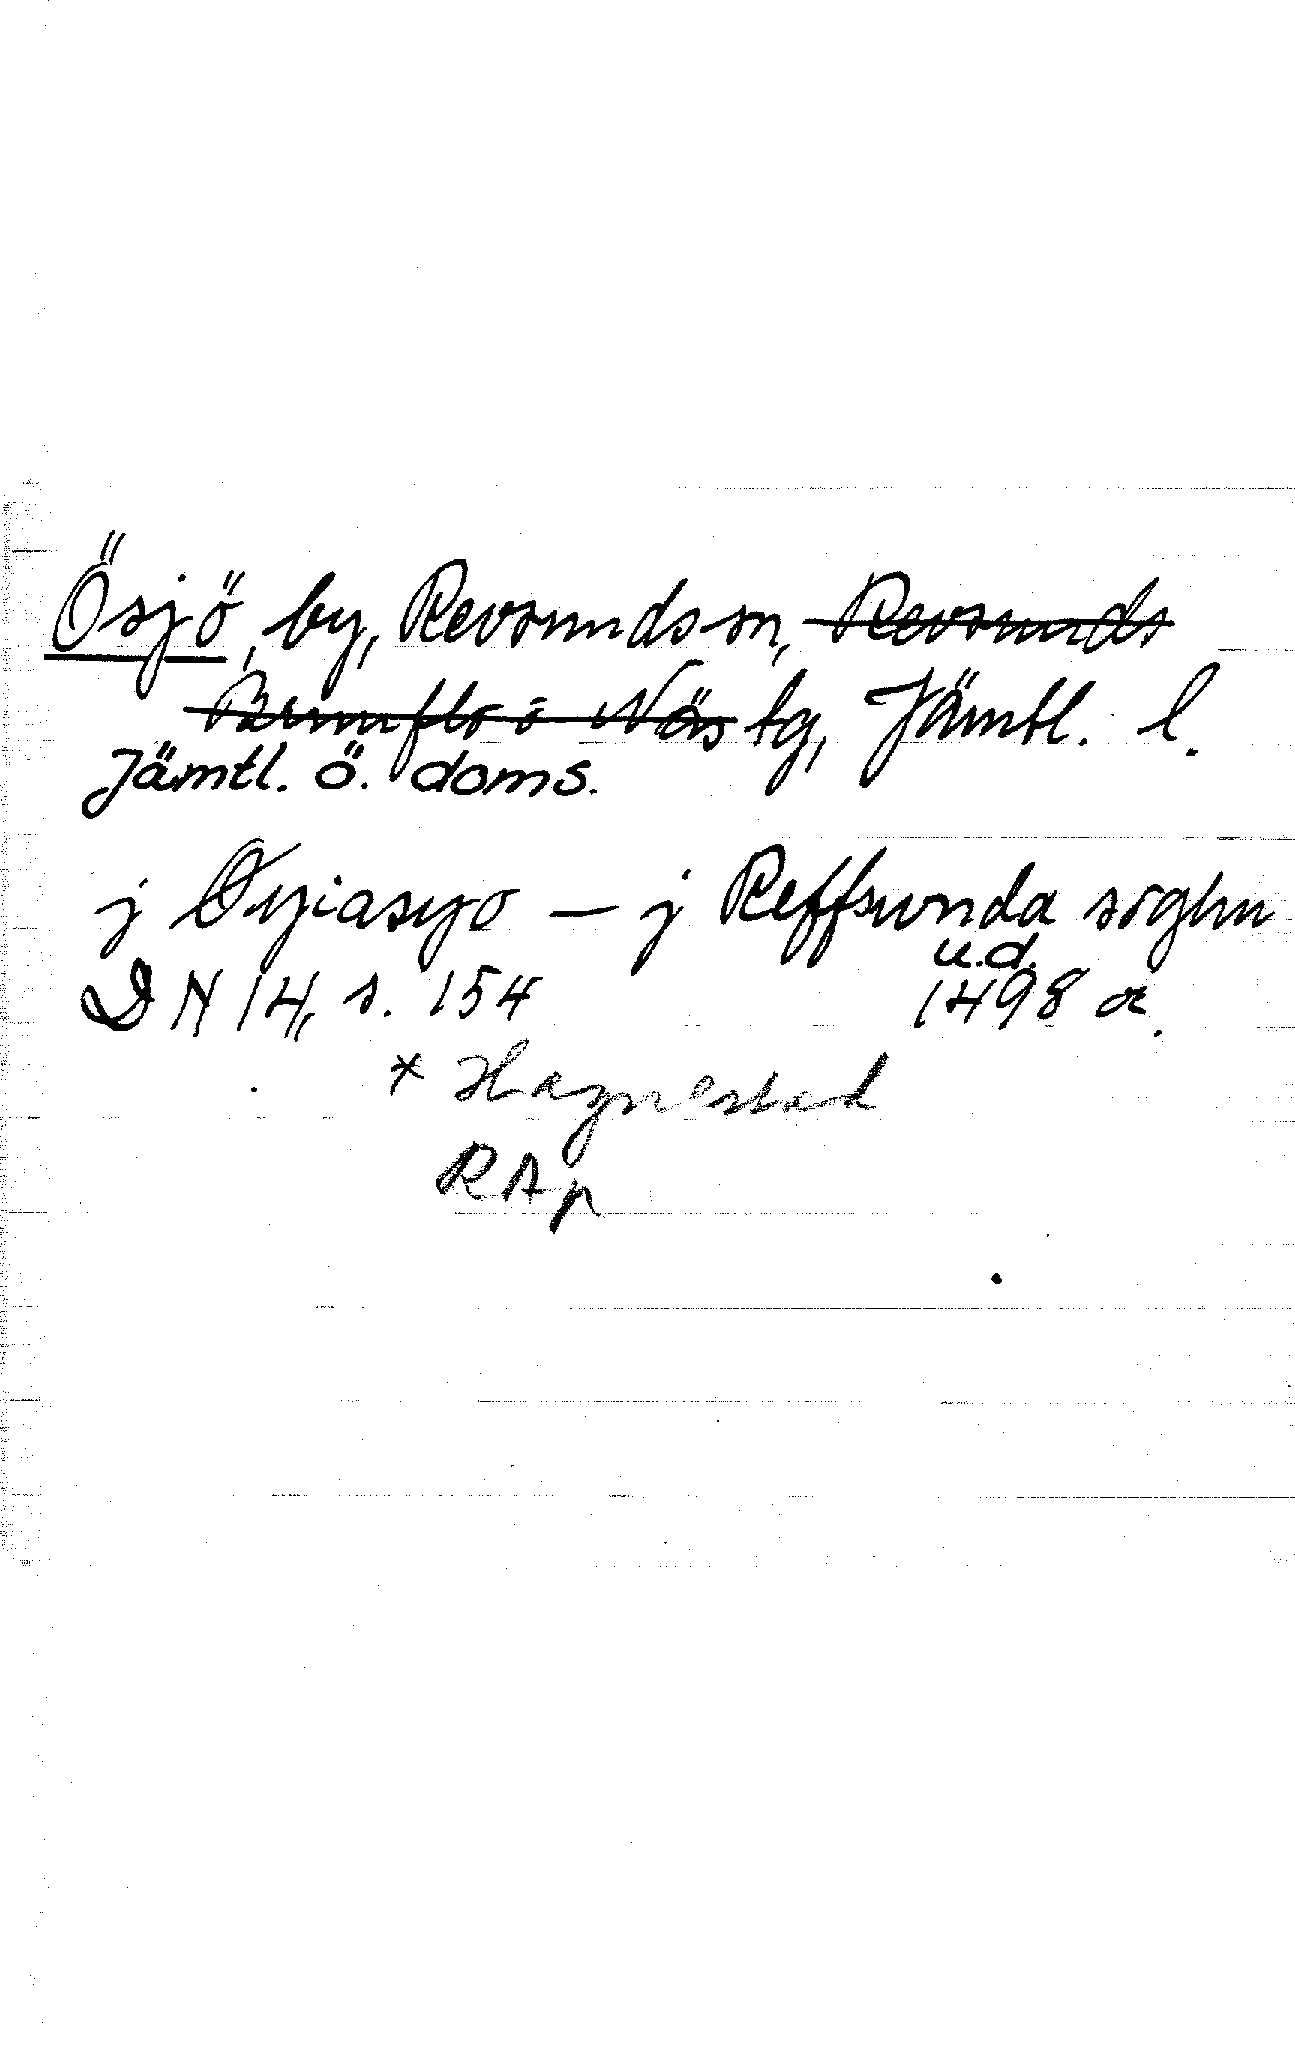 Ösjö, by, Revsunds sn, Revsunds
Brunflo o Näs tg, Jämtl. l.
Jämtl. ö. doms.
j Øyiasyo — j Reffsunda soghn
u.d.
DN 14, s. 154 1498 a.
* Hagnestad
RAp